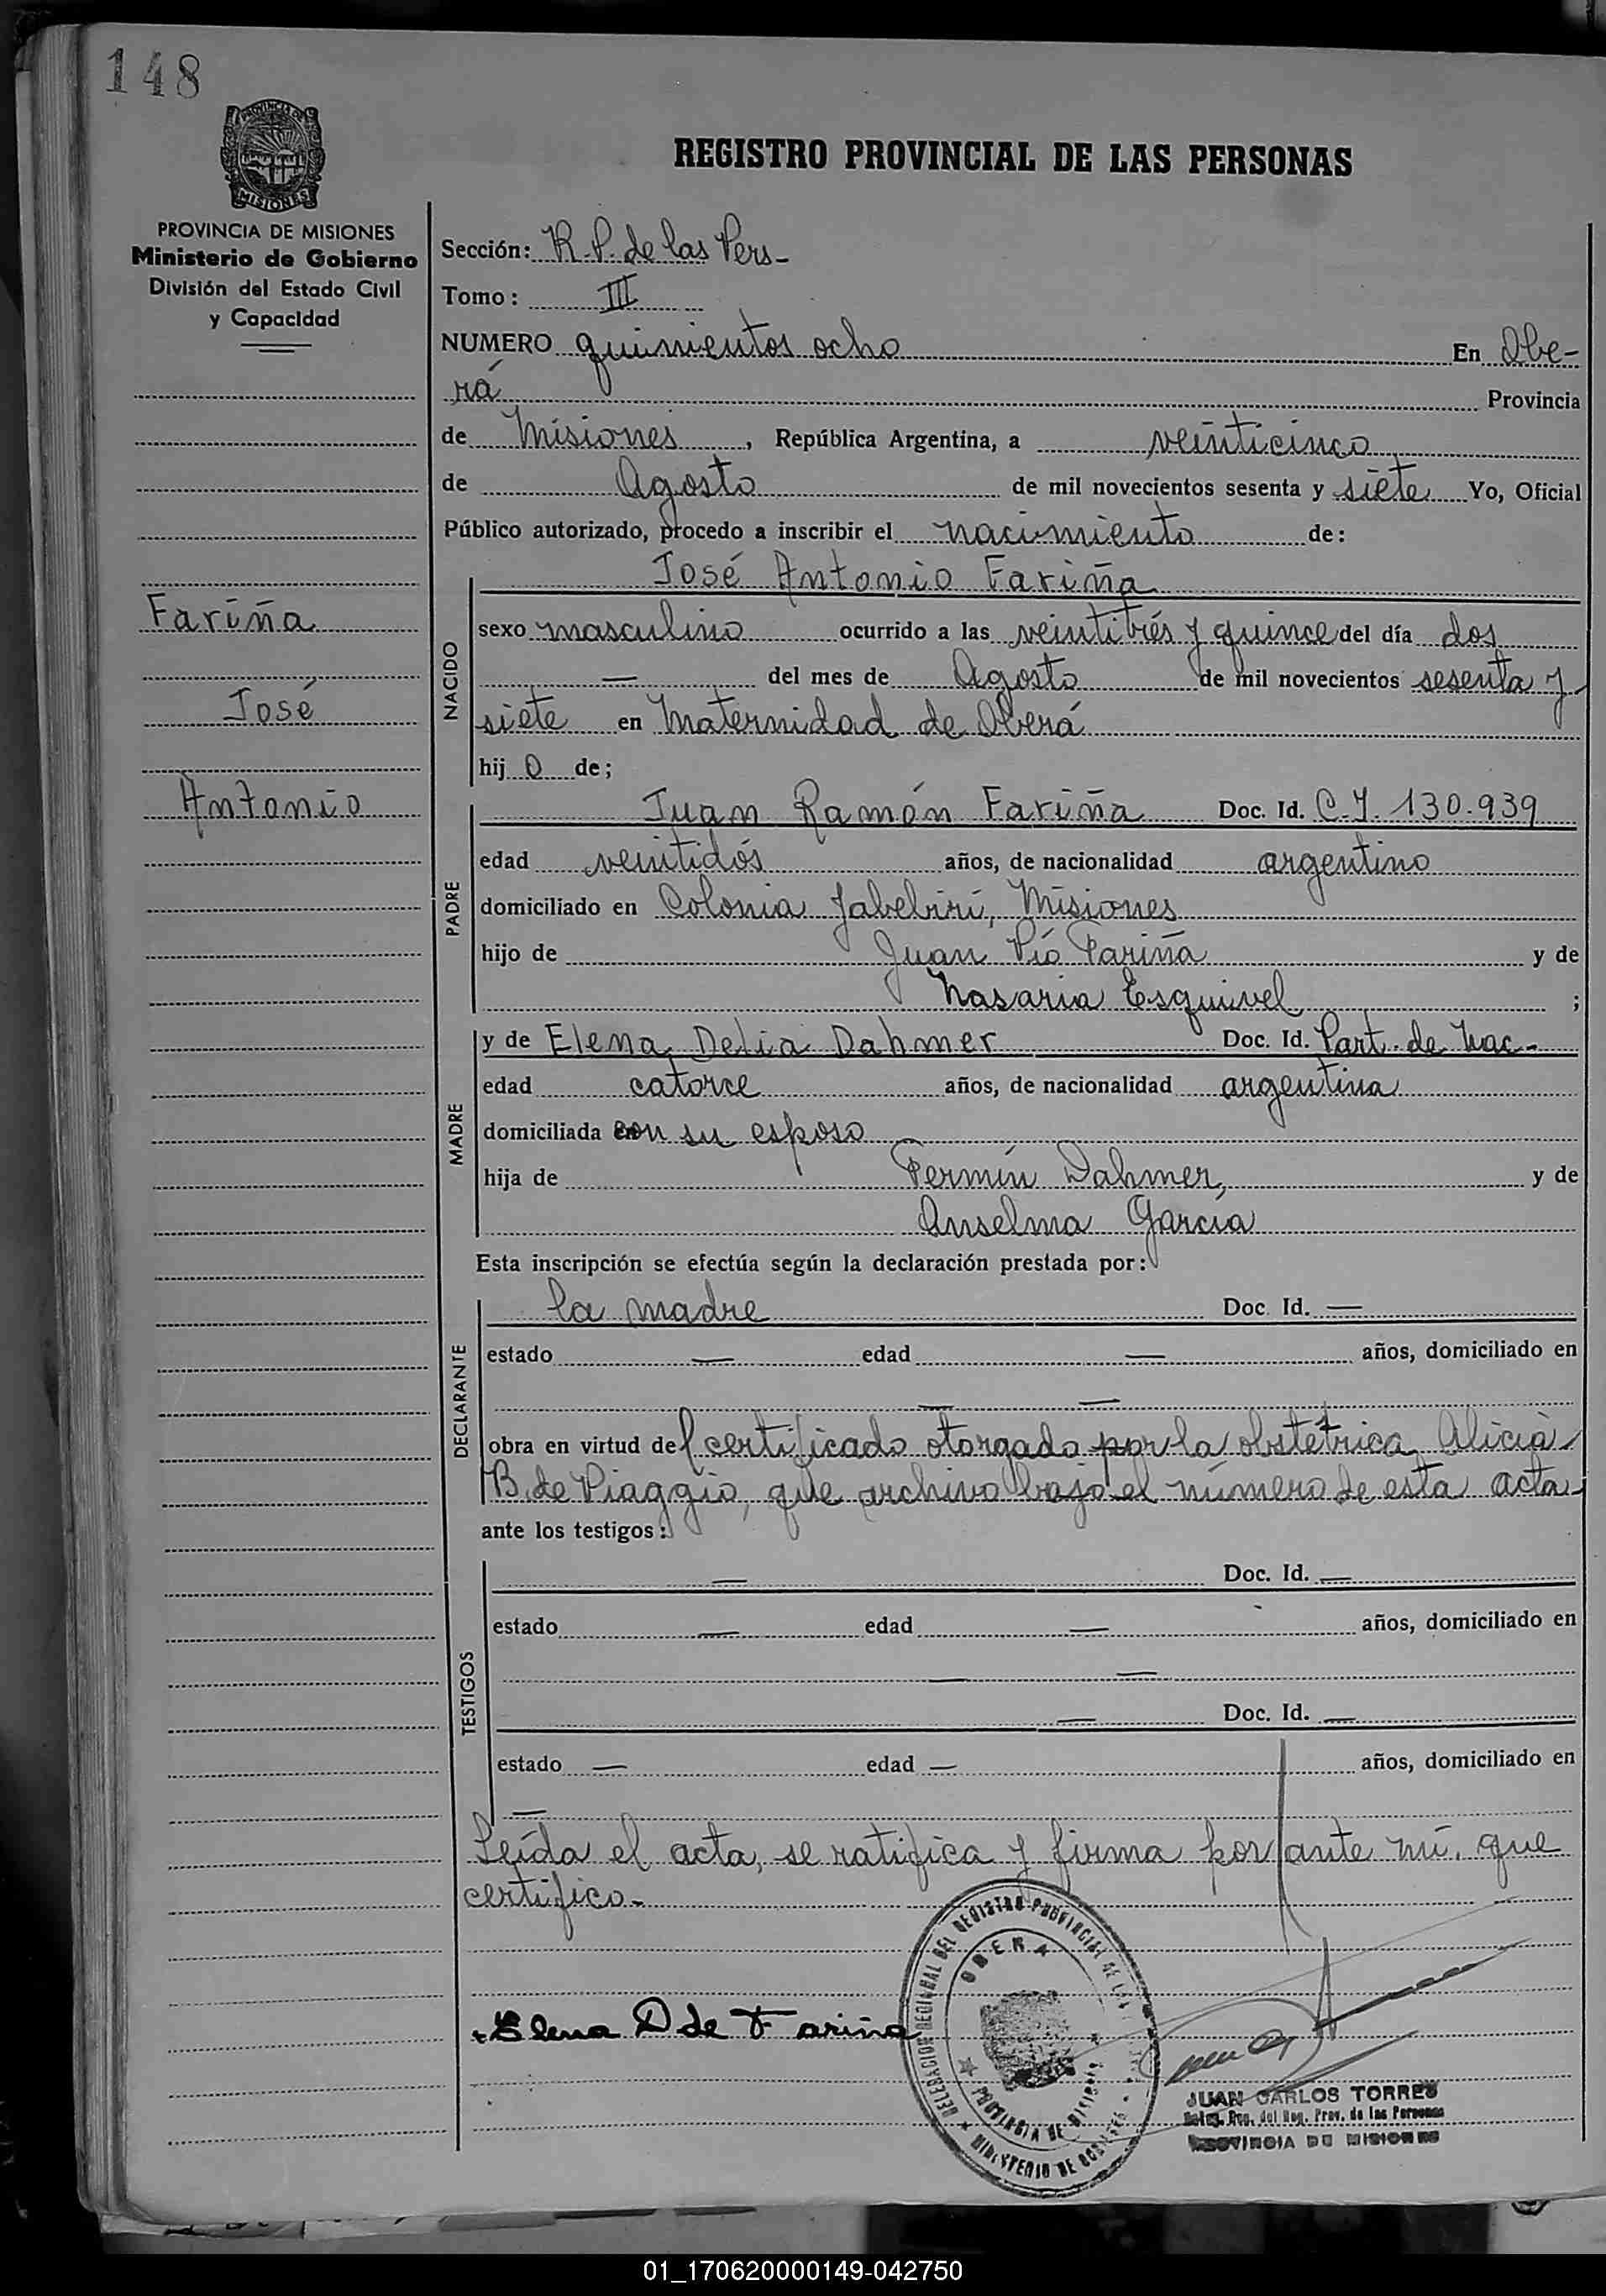 148
PROVINCIA DE
MISIONES
REGISTRO PROVINCIAL DE LAS PERSONAS
PROVINCIA DE MISIONES
Ministerio de Gobierno
División del Estado Civil
y Capacidad
Fariña
José
Antonio
Sección: R.P. de las Pers-
Tomo: III
NUMERO quinientos ocho En Obe-
rá Provincia
de Misiones, República Argentina, a veinticinco
de Agosto de mil novecientos sesenta y siete Yo, Oficial
Público autorizado, procedo a inscribir el nacimiento de:
José Antonio Fariña
NACIDO
sexo masculino ocurrido a las veintitrés y quince del día dos
— del mes de Agosto de mil novecientos sesenta y
siete en Maternidad de Oberá
hij o de;
PADRE
Juan Ramón Fariña Doc. Id. C.I. 130.939
edad veintidós años, de nacionalidad argentino
domiciliado en Colonia Jabebirí, Misiones
hijo de Juan Pío Fariña y de
Nasaria Esquivel ;
MADRE
y de Elena Delia Dahmer Doc. Id. Part. de Nac-
edad catorce años, de nacionalidad argentina
domiciliada con su esposo
hija de Fermín Dahmer, y de
Anselma García
Esta inscripción se efectúa según la declaración prestada por:
DECLARANTE
la madre Doc. Id. —
estado — edad — años, domiciliado en
— —
obra en virtud del certificado otorgado por la obstétrica Alicia
B. de Piaggio, que archivo bajo el número de esta acta
ante los testigos:
TESTIGOS
— Doc. Id. —
estado — edad — años, domiciliado en
— —
— Doc. Id. —
estado — edad — años, domiciliado en
—
Leída el acta, se ratifica y firma por ante mí, que
certifico.-
Elena D de Fariña
DELEGACION REGIONAL DEL REGISTRO PROVINCIAL DE LAS
OBERA
PROVINCIA DE MISIONES
MINISTERIO DE GOBIERNO
JUAN CARLOS TORRES
Deleg. Reg. del Reg. Prov. de las Personas
PROVINCIA DE MISIONES
01_170620000149-042750